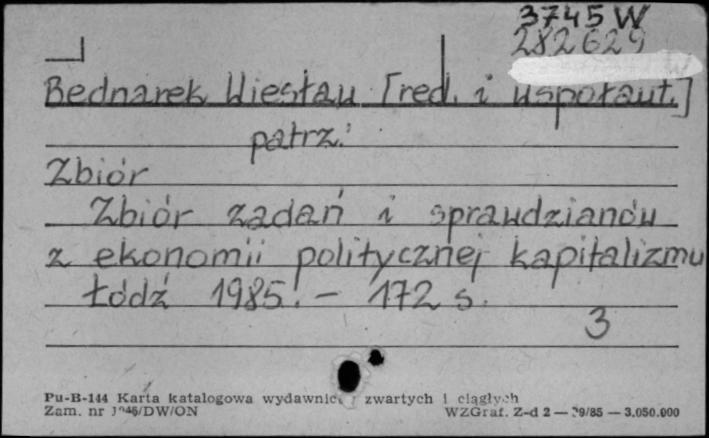 3745 W
282629
Bednarek Wiesław [red. i współaut.]
patrz:
Zbiór
Zbiór zadań i sprawdzianów
z ekonomii politycznej kapitalizmu
Łódź 1985. - 172 s.
3
Pu-B-144 Karta katalogowa wydawnic zwartych i ciągłych
Zam. nr /DW/ON WZGraf. Z-d 2 — 9/85 — 3.050.000